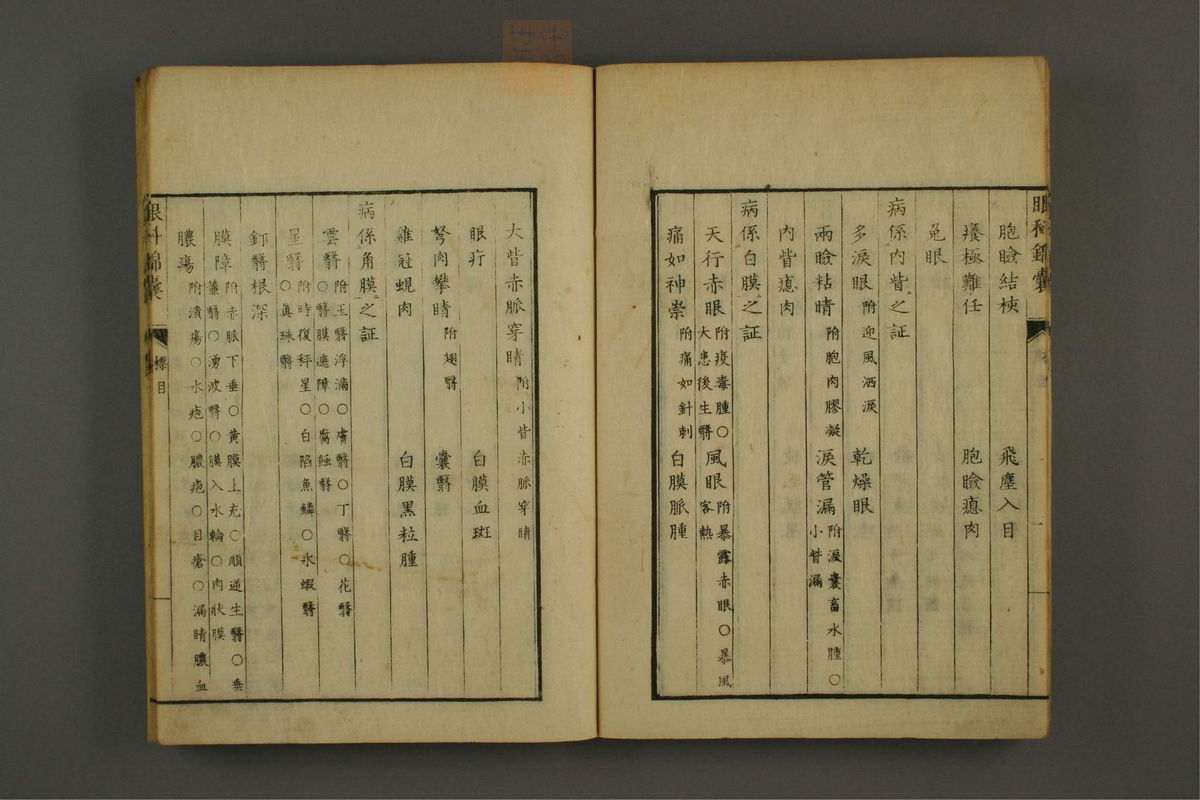 眼科錦囊
胞瞼結梗　飛塵入目
癢極難任　胞瞼瘜肉
兎眼
病係内眥之証
多淚眼　附迎風洒淚　乾燥眼
兩瞼粘睛　附胞肉膠凝　淚管漏　附淚囊畜水腫〇
小眥漏
内眥瘜肉
病係白膜之証
天行赤眼　附疫毒腫〇　風眼　附暴露赤眼〇暴風
大患後生翳　客熱
痛如神祟　附痛如針刺　白膜脈腫
大眥赤脈穿睛　附小眥赤脈穿睛
眼疔　白膜血斑
胬肉攀睛　附翅翳　囊翳
雞冠蜆肉　白膜黑粒腫
病係角膜之証
雲翳　附玉翳浮滿〇膚翳〇丁翳〇花翳
〇翳膜遮障〇腐蝕翳
星翳　附時復秤星〇白陷魚鱗〇氷蝦翳
〇眞珠翳
釘翳根深
膜障　附赤脈下垂〇黄膜上充〇順逆生翳〇垂
簾翳〇湧波翳〇膜入水輪〇肉狀膜
膿瘍　附潰瘍〇水疱〇膿疱〇目瘡〇漏睛膿血
眼科錦囊
標目